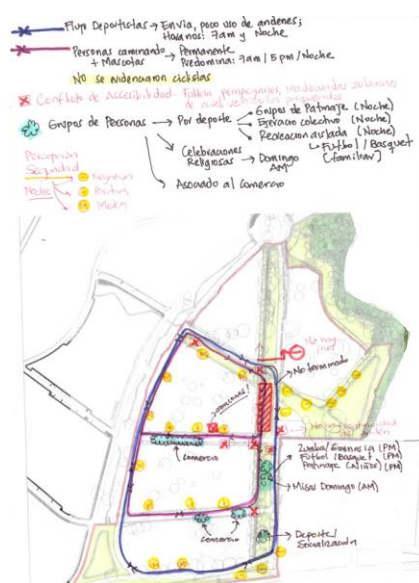 Flujo Deportistas → En vía, poco uso de andenes;
Horarios: 7am y Noche
Personas caminando → Permanente
+ Mascotas Predomina: 7am / 5pm / Noche
No se evidenciaron ciclistas
Conflicto de Accesibilidad: Faltan pompeyanos, inadecuadas soluciones
de nivel
Grupos de Personas → Por deporte → Grupos de Patinaje (Noche)
Ejercicio colectivo (Noche)
Recreación aislada (Noche)
Futbol / Basquet
(familiar)
Celebraciones
Religiosas → Domingo
AM
Asociado al comercio
Percepción
Seguridad
Noche
Negativa
Positiva
Media
No hay
No terminado
Comercio
Zumba/Gimnasia (PM)
Futbol/Basquet (PM)
Patinaje (Niños) (PM)
Misas Domingo (AM)
Comercio
Deporte/
Socialización